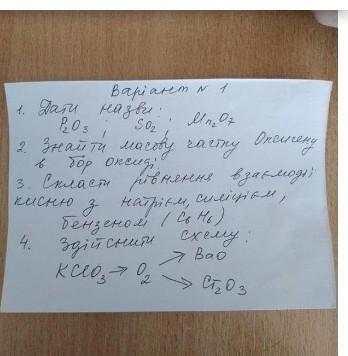 Варіант № 1
1. Дати назви:
P₂O₃; SO₂; Mn₂O₇
2. Знайти масову частку Оксигену
в бор оксиді;
3. Скласти рівняння взаємодії
кисню з натрієм, силіцієм,
бензеном (C₆H₆)
4. Здійснити схему:
→ BaO
KClO₃ → O₂
→ Cr₂O₃